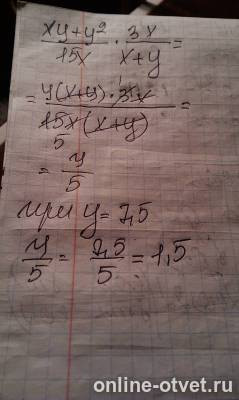 xy+y²/15x · 3x/x+y =
= y(x+y)·3x/15x(x+y) =
5
= y/5
при y=7,5
y/5 = 7,5/5 = 1,5
online-otvet.ru